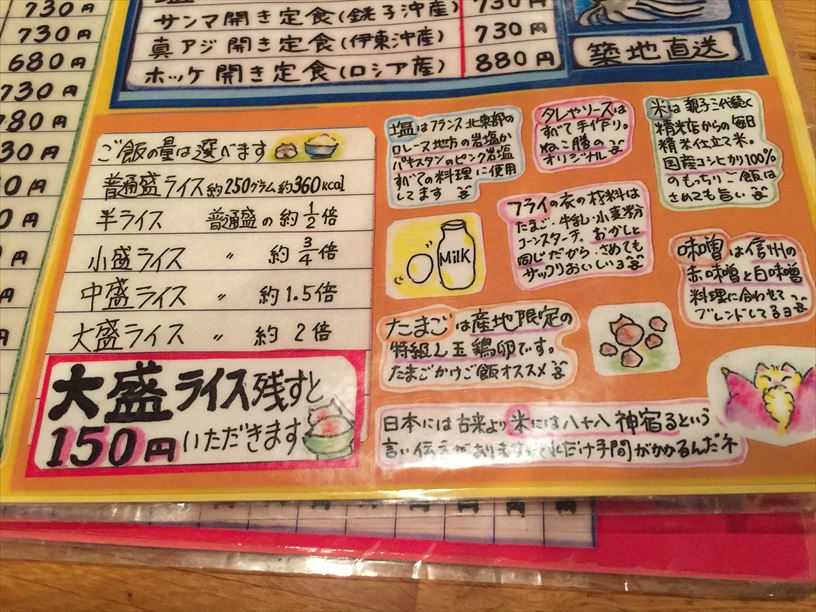 730円
730円
680円
730円
780円
30円
0円
円
円
円
サンマ開き定食(銚子沖産) 730円
真アジ開き定食(伊東沖産) 730円
ホッケ開き定食(ロシア産) 880円
築地直送
ご飯の量は選べます
普通盛ライス約250グラム約360kcal
半ライス 普通盛の約1/2倍
小盛ライス 〃 約3/4倍
中盛ライス 〃 約1.5倍
大盛ライス 〃 約2倍
大盛ライス残すと
150円いただきます
塩はフランス北東部の
ロレーヌ地方の岩塩か
パキスタンのピンク岩塩
すべての料理に使用
してます
タレやソースは
すべて手作り。
ねこ膳の
オリジナル
米は親子三代続く
精米店からの毎日
精米仕立て米。
国産コシヒカリ100%
のもっちりご飯は
さめても旨い
フライの衣の材料は
たまご・牛乳・小麦粉
コーンスターチ。おかしと
同じだから、さめても
サックリおいしいよ
MILK
味噌は信州の
赤味噌と白味噌
料理に合わせて
ブレンドしてるヨ
たまごは産地限定の
特級L玉鶏卵です。
たまごかけご飯オススメ
日本には古来より米には八十八神宿るという
言い伝えがあります。それだけ手間がかかるんだネ